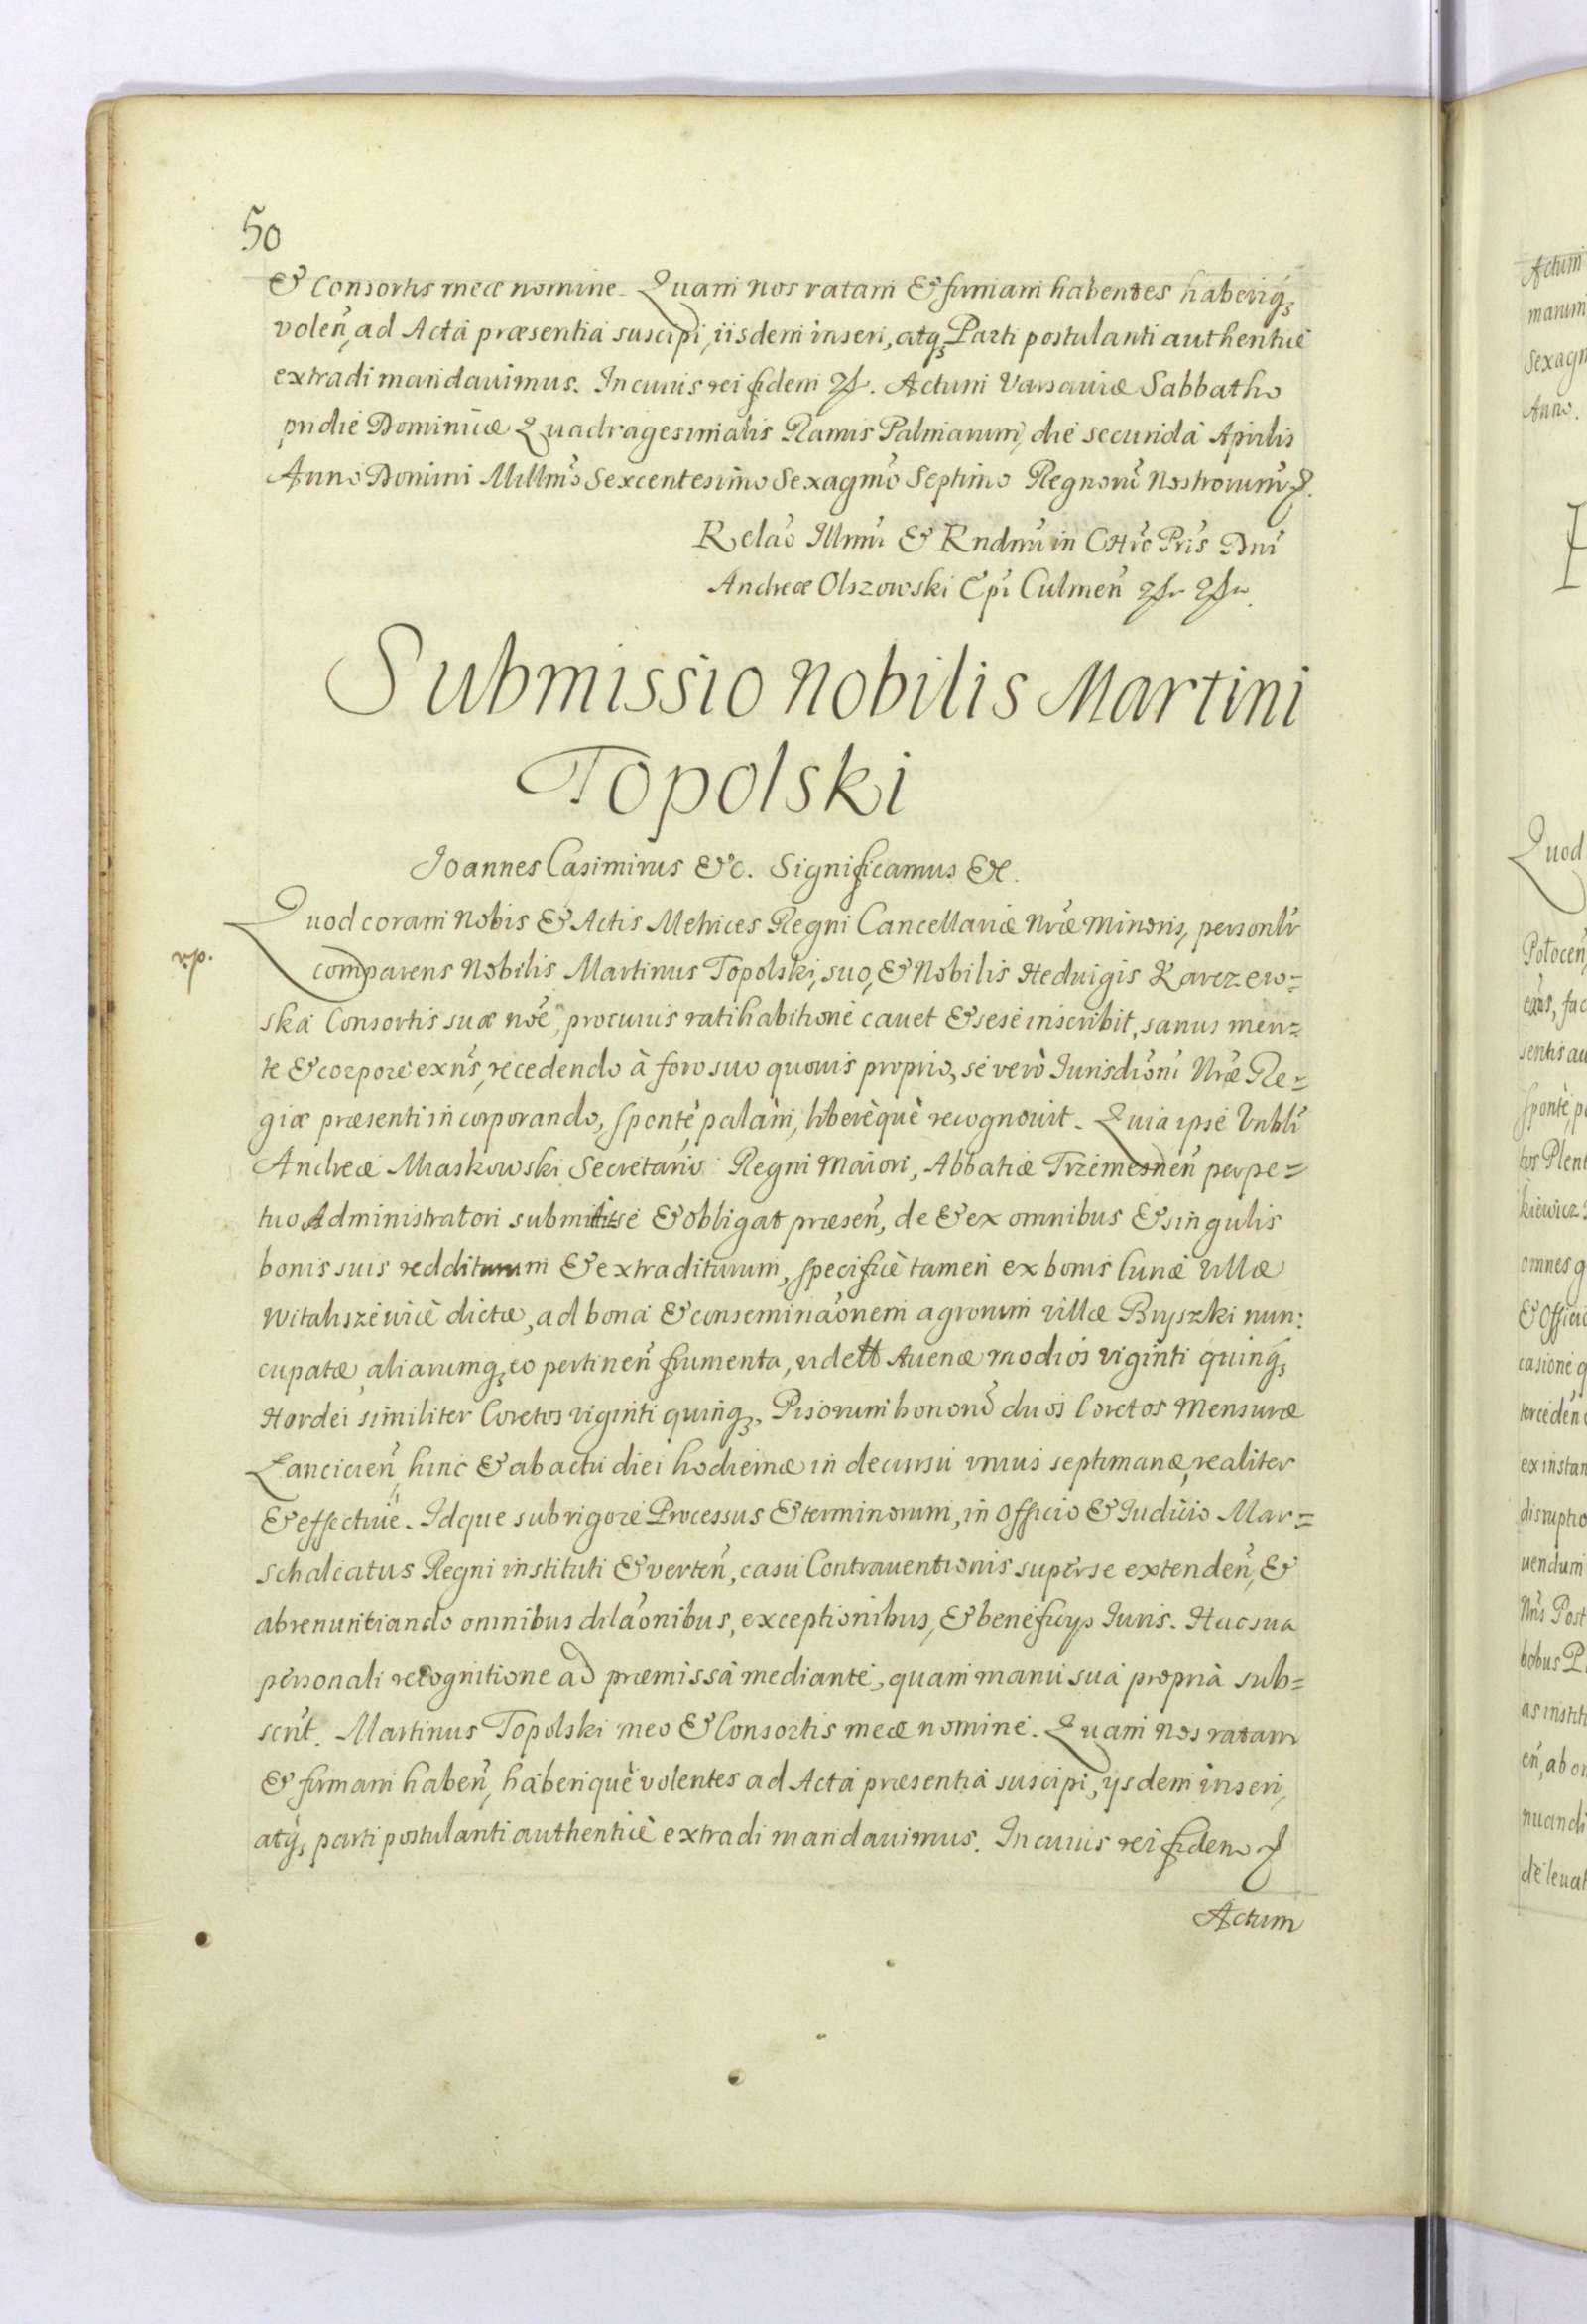 50
& Consortis meæ nomine. Quam nos ratam & firmam habentes haberiq;
volen̄, ad Acta præsentia suscipi, iisdem inseri, atq; Parti postulanti authenticè
extradi mandauimus. In cuius rei fidem Actum Varsauiæ Sabbatho
pridie Dominicæ Quadragesimalis Ramis Palmarum, die secunda Aprilis
Anno Domini Millmō Sexcentesimo Sexagmō Septimo Regnorū Nostrorum
Relaō Illmi & Rndmi in Chrō Pris Dni
Andreæ Olszowski Epi Culmen̄
Submissio Nobilis Martini
Topolski
Joannes Casimirus &c. Significamus &c.
Quod coram Nobis & Actis Metrices Regni Cancellariæ Nræ Minoris, personlr
comparens Nobilis Martinus Topolski, suo, & Nobilis Heduigis Karczew=
v.p.
ska Consortis suæ noē, pro cuius ratihabitione cauet & sese inscribit, sanus men=
te & corpore exns, recedendo à foro suo quouis proprio, se verò Iurisdioni Nræ Re=
giæ præsenti incorporando, spontè, palàm, liberèquè recognouit. Quia ipse Vnbli
Andreæ Miaskowski Secretario Regni Maiori, Abbatiæ Trzemesnen̄ perpe=
tuo Administratori submitit se & obligat præsen̄, de & ex omnibus & singulis
bonis suis redditurum & extraditurum, specificè tamen ex bonis siuæ villæ
Witaliszewice dictæ, ad bona & conseminaōnem agrorum villæ Bryszki nun:
cupatæ, aliarumq; eo pertinen̄ frumenta, vidett Auenæ modios viginti quinq;
Hordei similiter Coretos viginti quinq;, Pisorum bonorū duos Coretos Mensuræ
Lancicien̄, hinc & ab actu diei hodiernæ in decursu vnius septimanæ, realiter
& effectiuè. Idque sub rigore Processus & terminorum, in Officio & Iudicio Mar=
schalcatus Regni instituti & verten̄, casu Contrauentionis super se extenden̄, &
abrenuntiando omnibus dilaōnibus, exceptionibus, & beneficys Iuris. Hac sua
personali recognitione ad præmissa mediante, quam manu sua propria sub=
scrit. Martinus Topolski meo & Consortis meæ nomine. Quam nos ratam
& firmam haben̄, haberiquè volentes ad Acta præsentia suscipi, ysdem inseri,
atq; parti postulanti authenticè extradi mandauimus. In cuius rei fidem
Actum